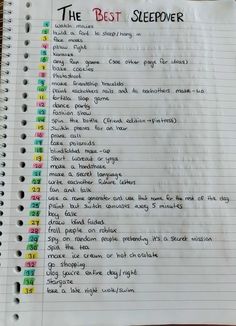 THE BEST SLEEPOVER
1 watch movies
2 build a fort to sleep/hang in
3 face masks
4 pillow fight
5 karaoke
6 any fun game (see other page for ideas)
7 bake cookies
8 Photoshoot
9 make friendship bracelets
10 paint eachothers nails and do eachothers make-up
11 tortilla slap game
12 dance party
13 fashion show
14 spin the bottle (friend edition →pintrest)
15 switch phones for an hour
16 prank call
17 take polaroids
18 blindfolded make-up
19 short workout or yoga
20 make a handshake
21 make a secret language
22 write eachother future letters
23 tan and talk
24 use a name generator and use that name for the rest of the day
25 paint but switch canvases every 5 minutes
26 boy talk
27 draw blind folded
28 troll people on roblox
29 spy on random people pretending it's a secret mission
30 spill the tea
31 make ice cream or hot chocolate
32 go shopping
33 vlog you're entire day/night
34 Stargaze
35 take a late night walk/swim